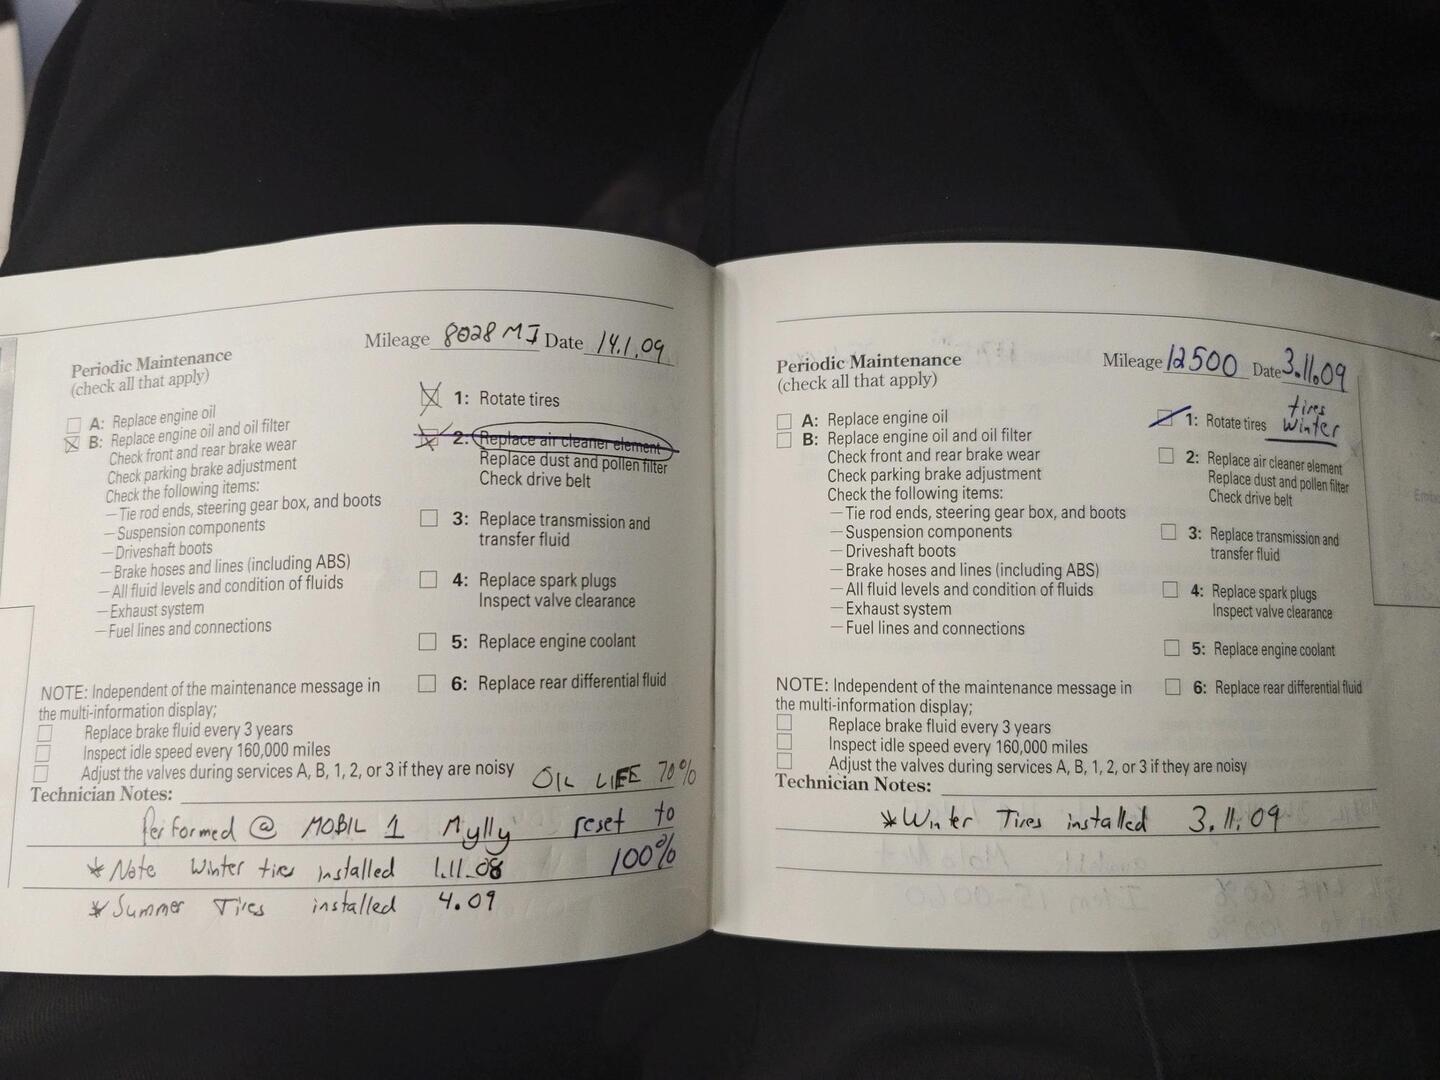 Mileage 8028 MI Date 14.1.09
Periodic Maintenance
(check all that apply)
A: Replace engine oil
B: Replace engine oil and oil filter
Check front and rear brake wear
Check parking brake adjustment
Check the following items:
—Tie rod ends, steering gear box, and boots
—Suspension components
—Driveshaft boots
—Brake hoses and lines (including ABS)
—All fluid levels and condition of fluids
—Exhaust system
—Fuel lines and connections
1: Rotate tires
2: Replace air cleaner element
Replace dust and pollen filter
Check drive belt
3: Replace transmission and
transfer fluid
4: Replace spark plugs
Inspect valve clearance
5: Replace engine coolant
6: Replace rear differential fluid
NOTE: Independent of the maintenance message in
the multi-information display;
Replace brake fluid every 3 years
Inspect idle speed every 160,000 miles
Adjust the valves during services A, B, 1, 2, or 3 if they are noisy
Technician Notes: OIL LIFE 70%
Performed @ MOBIL 1 Mylly reset to
* Note Winter tires installed 1.11.08 100%
* Summer Tires installed 4.09
Mileage 12500 Date 3.11.09
Periodic Maintenance
(check all that apply)
A: Replace engine oil
B: Replace engine oil and oil filter
Check front and rear brake wear
Check parking brake adjustment
Check the following items:
—Tie rod ends, steering gear box, and boots
—Suspension components
—Driveshaft boots
—Brake hoses and lines (including ABS)
—All fluid levels and condition of fluids
—Exhaust system
—Fuel lines and connections
tires
1: Rotate tires Winter
2: Replace air cleaner element
Replace dust and pollen filter
Check drive belt
3: Replace transmission and
transfer fluid
4: Replace spark plugs
Inspect valve clearance
5: Replace engine coolant
6: Replace rear differential fluid
NOTE: Independent of the maintenance message in
the multi-information display;
Replace brake fluid every 3 years
Inspect idle speed every 160,000 miles
Adjust the valves during services A, B, 1, 2, or 3 if they are noisy
Technician Notes:
* Winter Tires installed 3.11.09